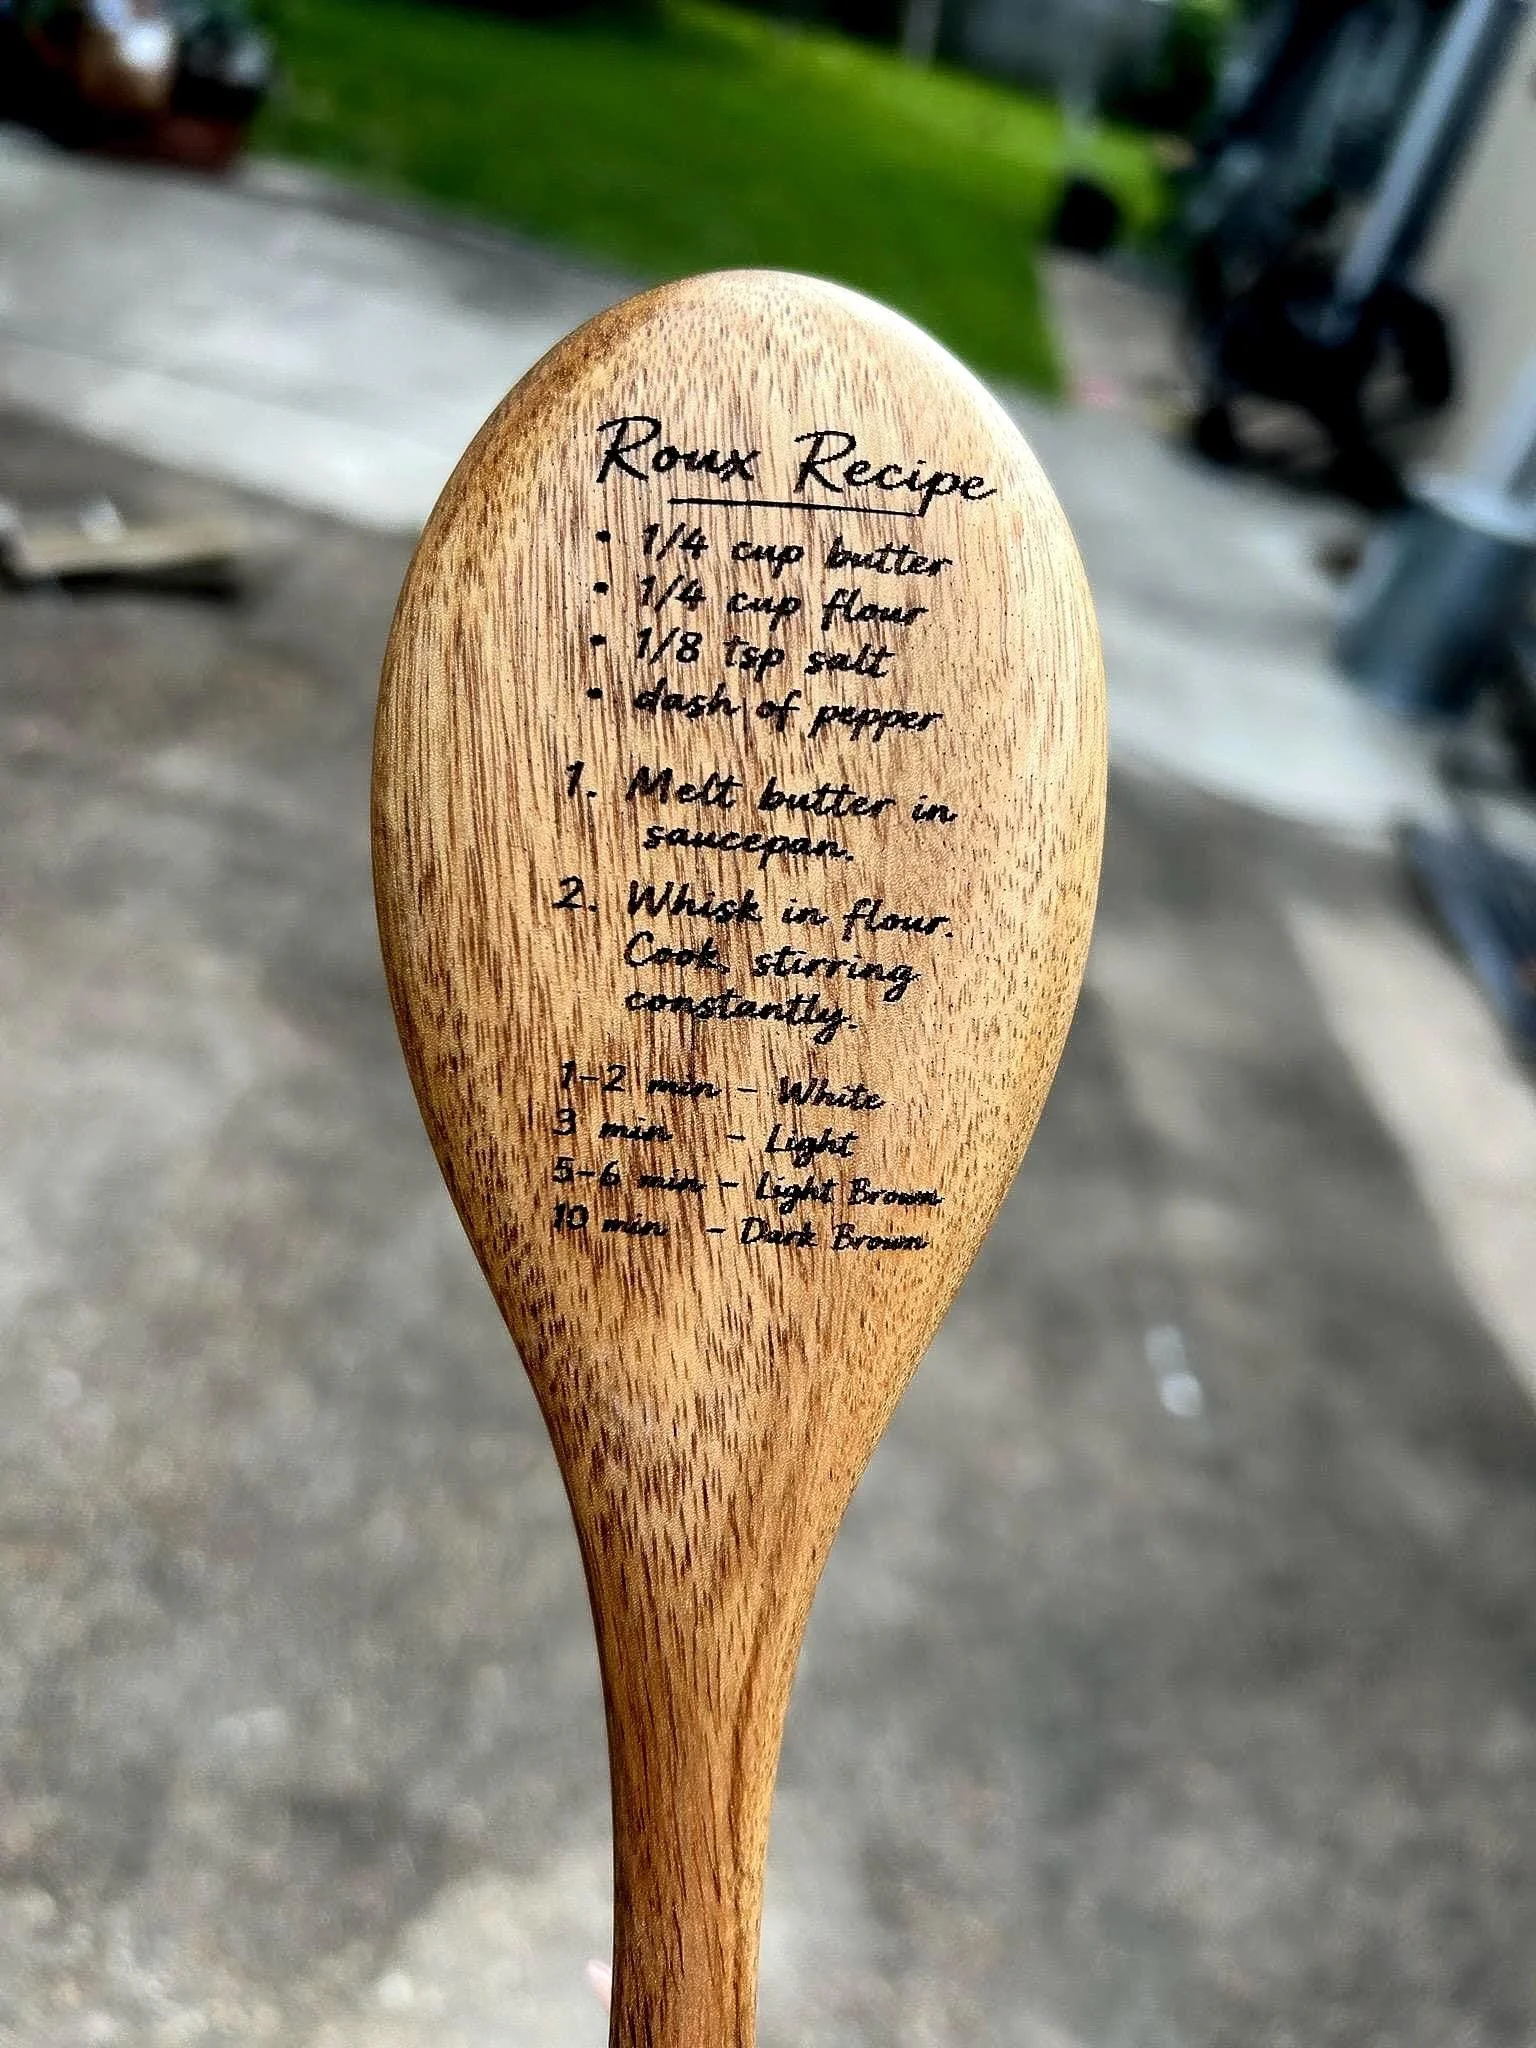 Roux Recipe
• 1/4 cup butter
• 1/4 cup flour
• 1/8 tsp salt
• dash of pepper
1. Melt butter in
saucepan.
2. Whisk in flour.
Cook, stirring
constantly.
1-2 min - White
3 min - Light
5-6 min - Light Brown
10 min - Dark Brown